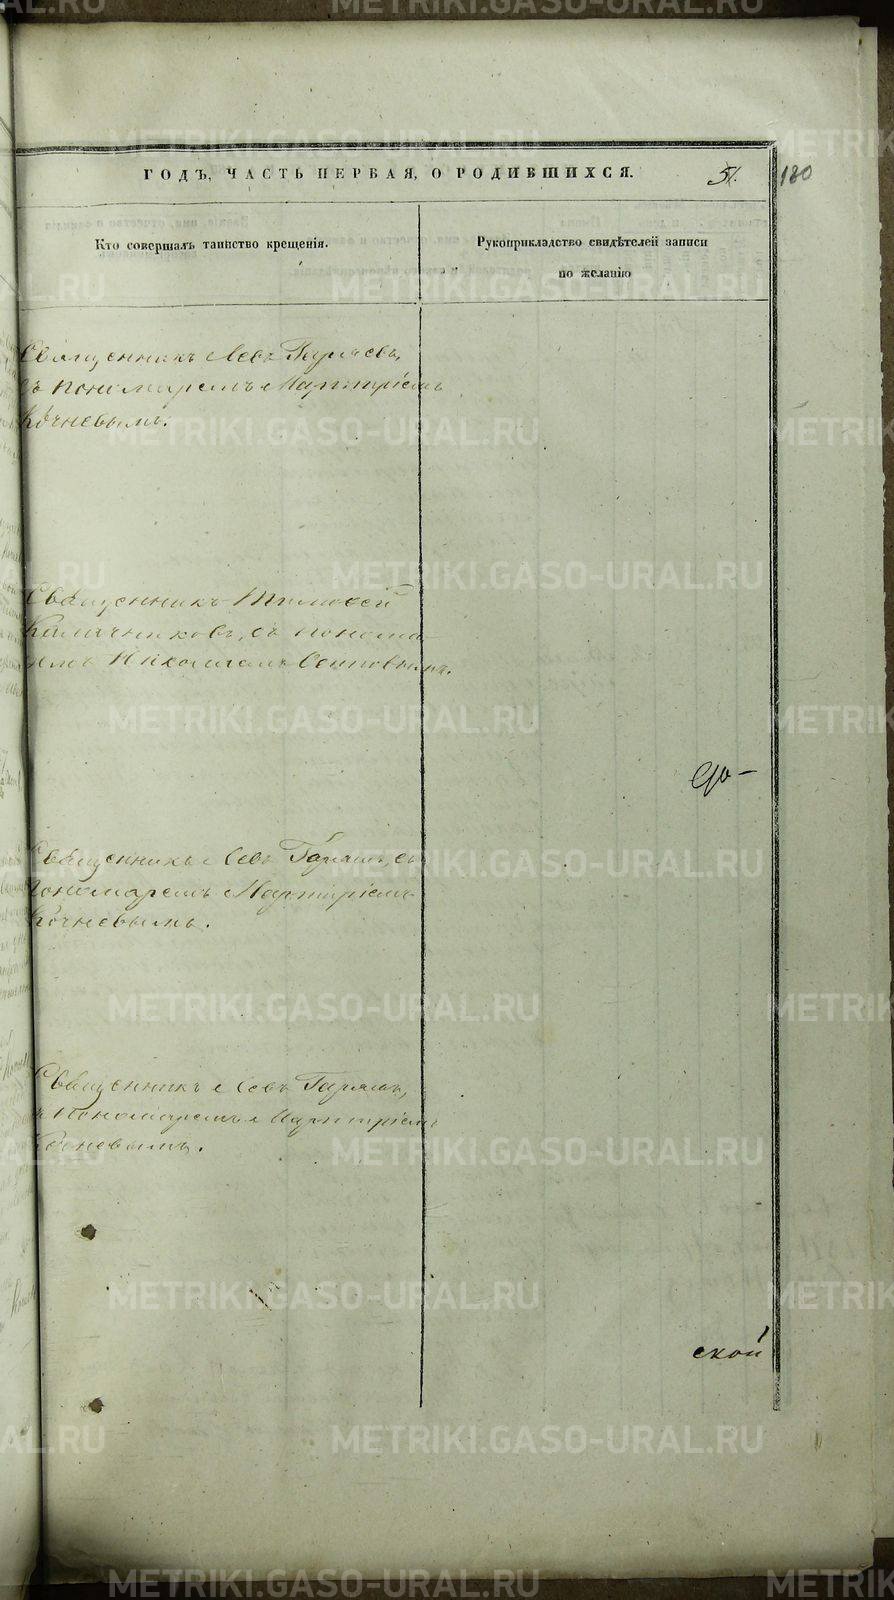 ГОДЪ, ЧАСТЬ ПЕРВАЯ, О РОДИВШИХСЯ.
51.
180
Кто совершалъ таинство крещенія.
Рукоприкладство свидѣтелей записи
по желанію
Священникъ Левъ
съ пономаремъ Мартиріемъ
Кочневымъ.
Священникъ Тимоѳей
съ понома-
Николаемъ
Священникъ Левъ съ
пономаремъ Мартиріемъ
Кочневымъ.
Священникъ Левъ
пономаремъ Мартиріемъ
Кочневымъ.
ской
METRIKI.GASO-URAL.RU